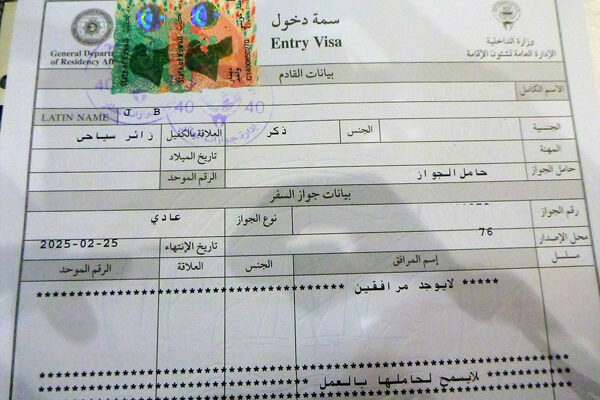 سمة دخول
Entry Visa
General Depar
of Residency Aff
وزارة الداخلية
الإدارة العامة لشئون الإقامة
بيانات القادم
الاسم الكامل
LATIN NAME J B
الجنسية
الجنس ذكر
العلاقة بالكفيل زائر سياحى
المهنة
تاريخ الميلاد
حامل الجواز حامل الجواز
الرقم الموحد
بيانات جواز السفر
رقم الجواز
نوع الجواز عادي
محل الإصدار 76
تاريخ الإنتهاء 2025-02-25
مسلسل إسم المرافق الجنس العلاقة الرقم الموحد
***** لايوجد مرافقين *****
***** لايسمح لحاملها بالعمل *****
40
40